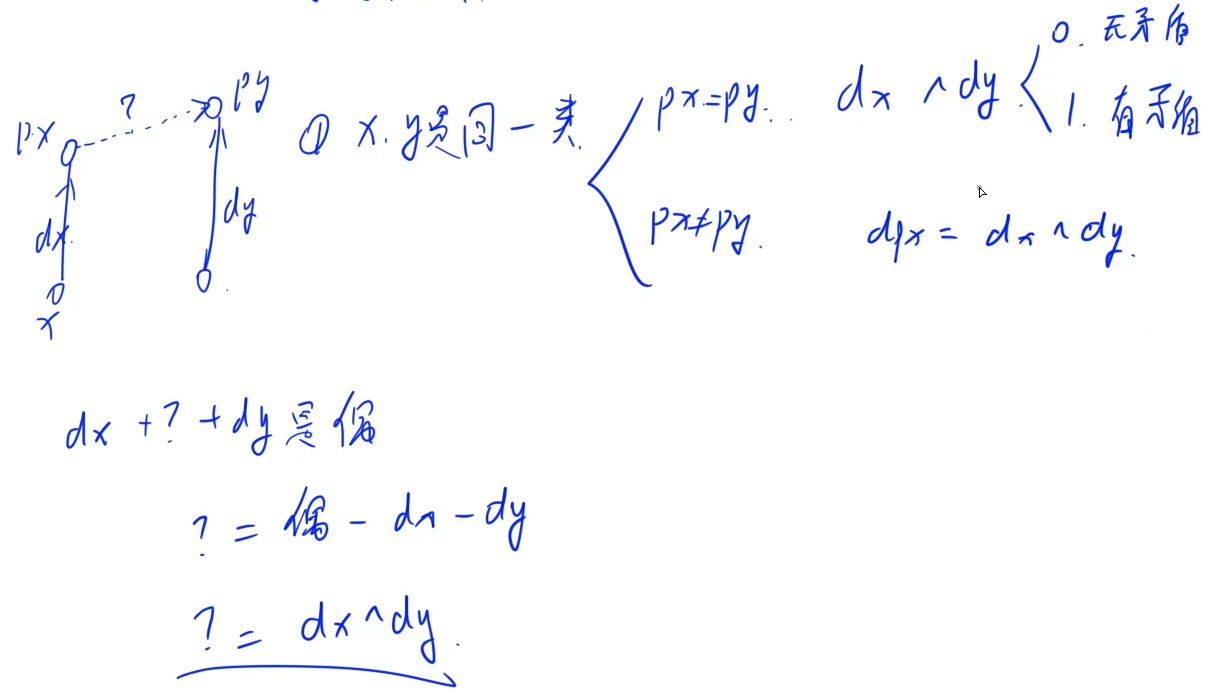 0. 无矛盾
px=py. dx ^ dy.
1. 有矛盾
px ? py
① x.y是同一类.
dx dy
px≠py. dpx = dx ^ dy.
x
dx + ? + dy是偶
? = 偶 - dx - dy
? = dx ^ dy.